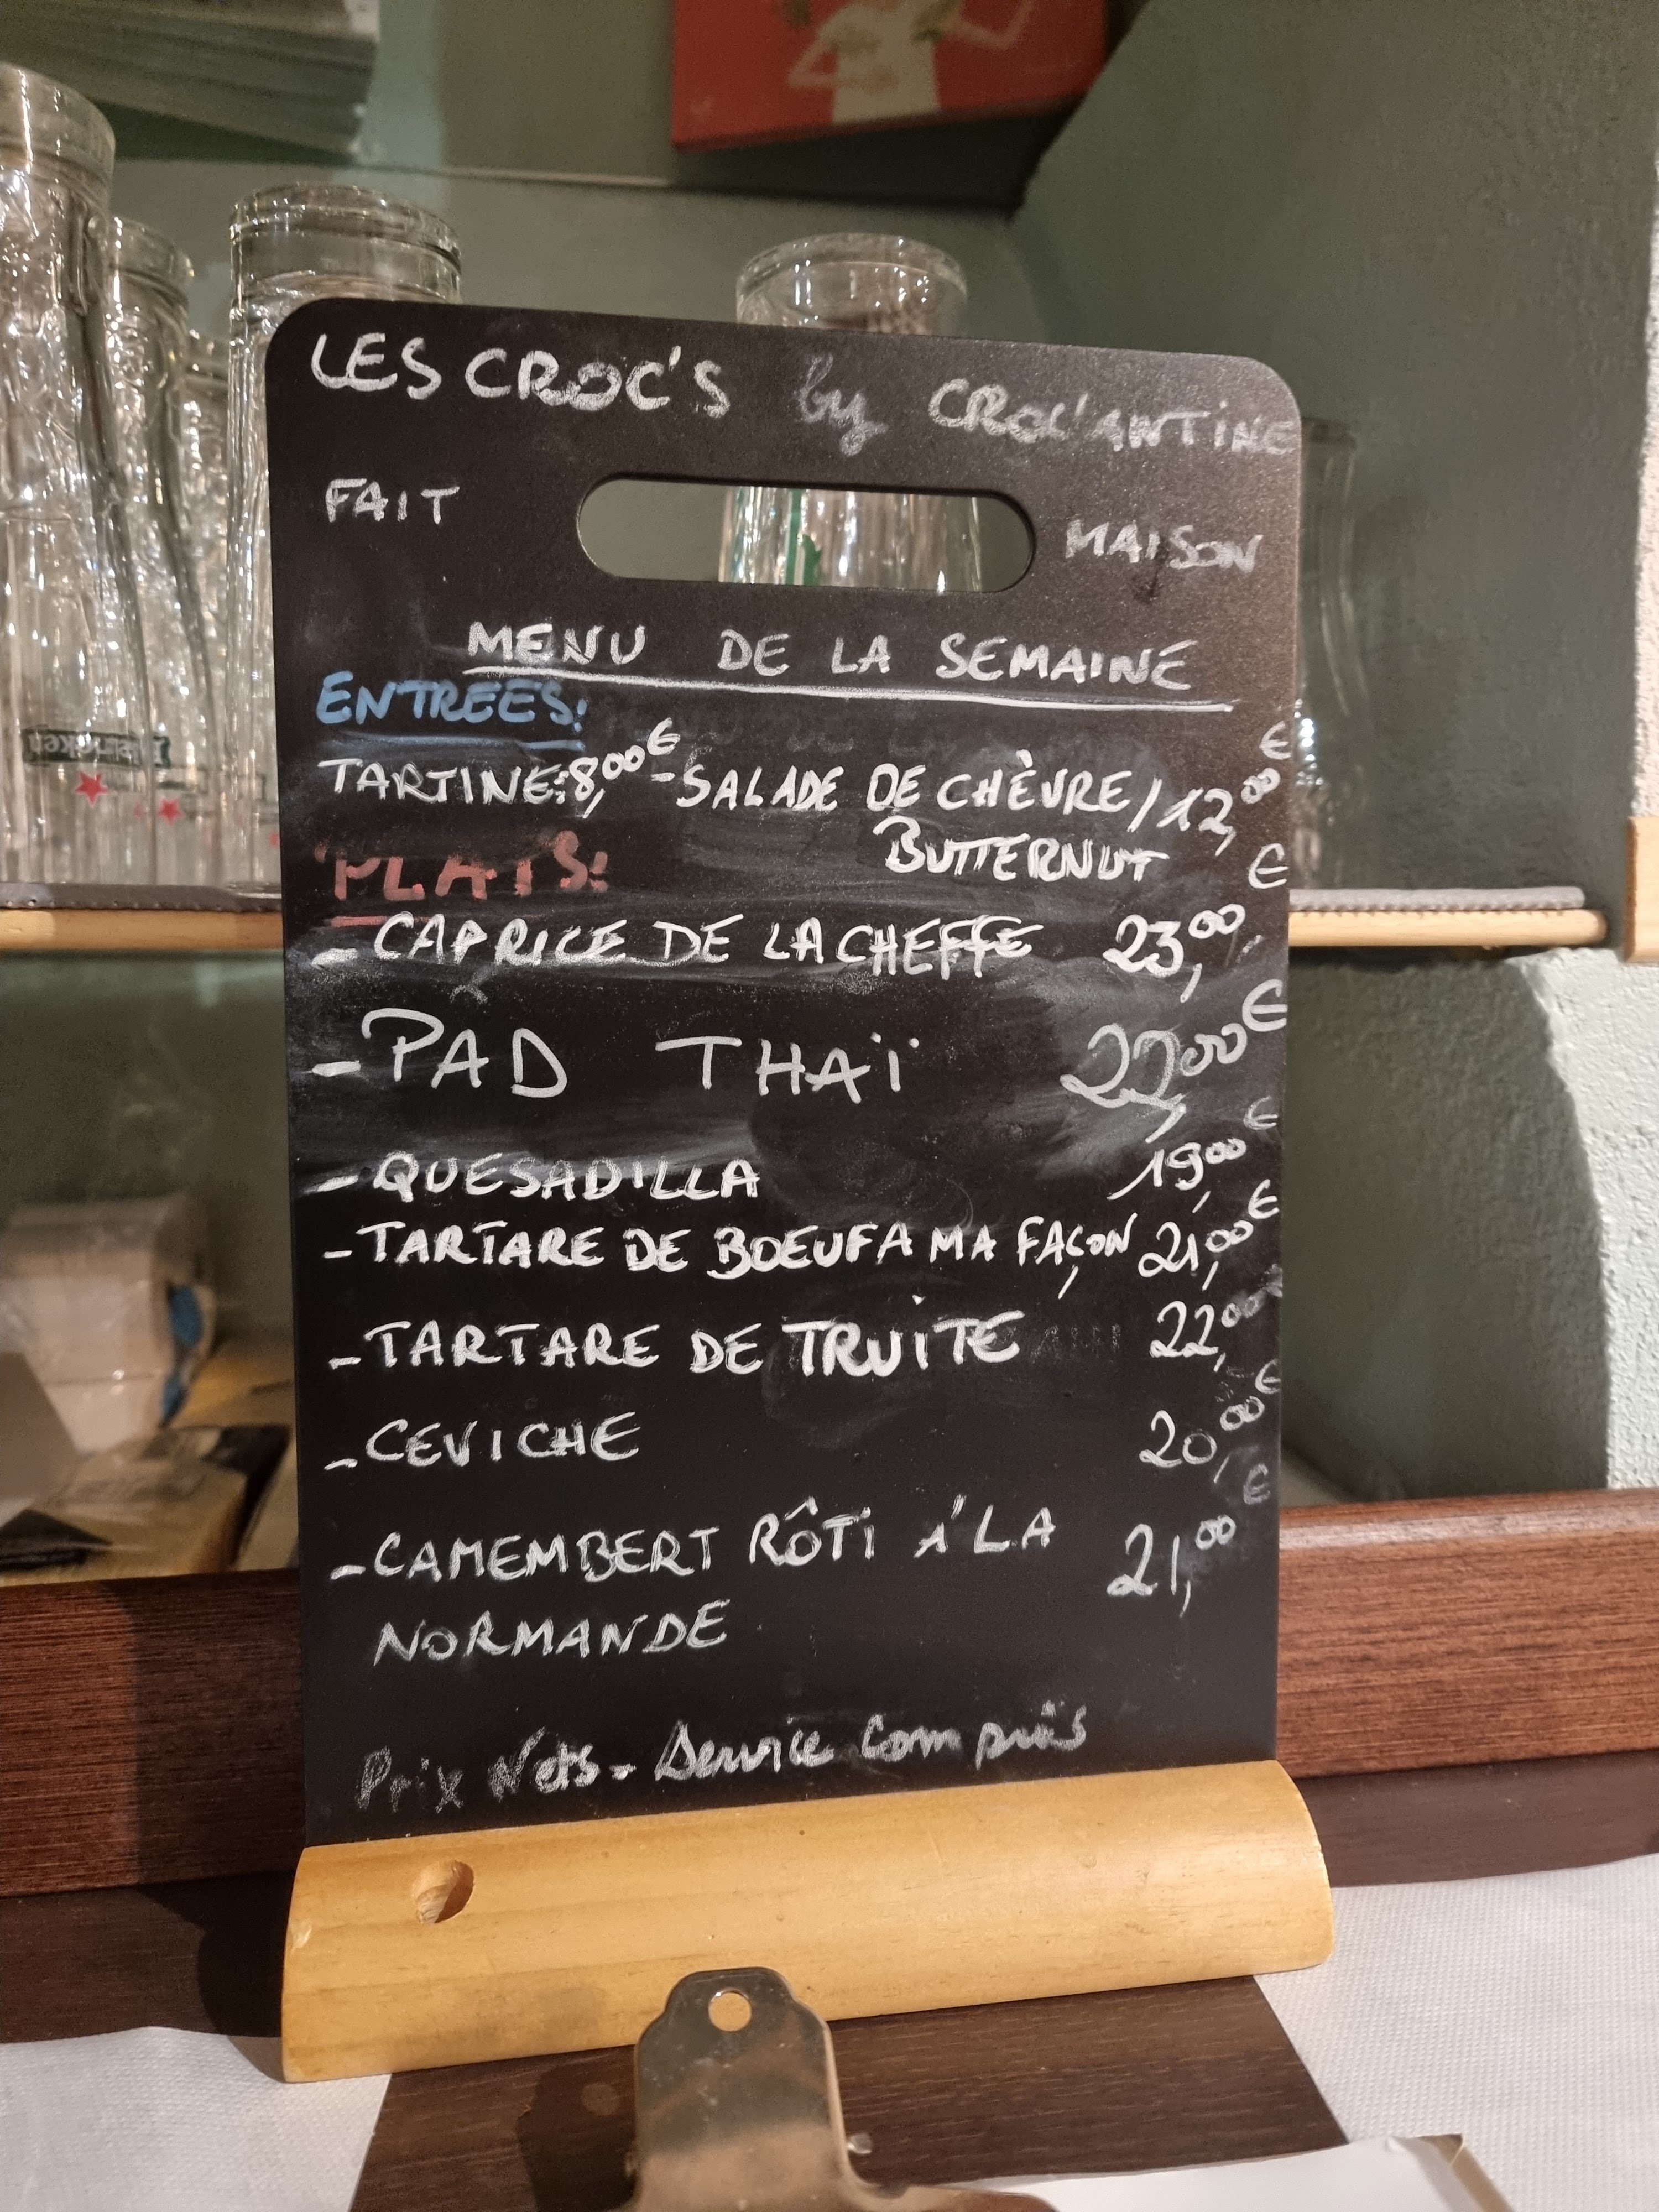 LES CROC'S by CROC'ANTINE
FAIT MAISON
MENU DE LA SEMAINE
ENTREES:
TARTINE: 8,00€ - SALADE DE CHÈVRE / 12,00€
BUTTERNUT
PLATS:
- CAPRICE DE LA CHEFFE 23,00€
- PAD THAÏ 22,00€
- QUESADILLA 19,00€
- TARTARE DE BOEUF A MA FAÇON 21,00€
- TARTARE DE TRUITE 22,00
- CEVICHE 20,00€
- CAMEMBERT RÔTI À LA 21,00€
NORMANDE
Prix Nets - Service Compris
Heineken